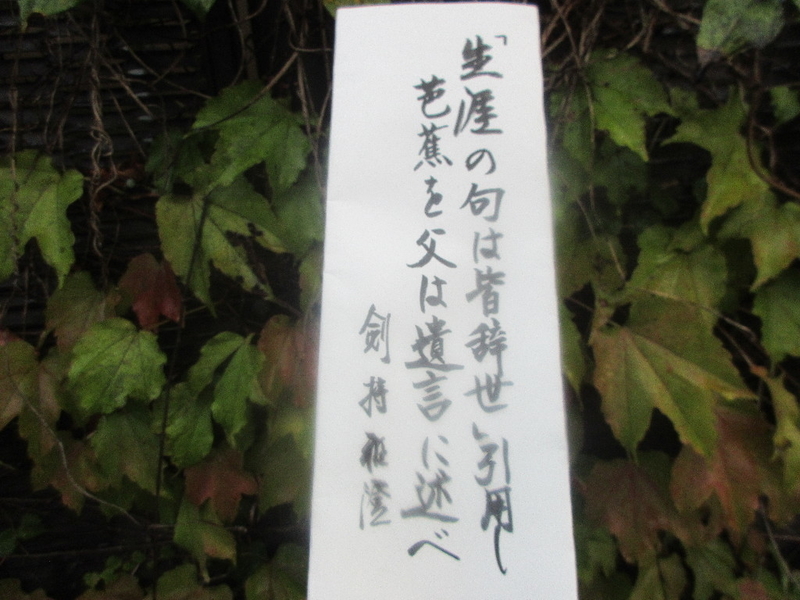 「生涯の句は皆辞世」引用し
芭蕉を父は遺言に述べ
剣持雅澄